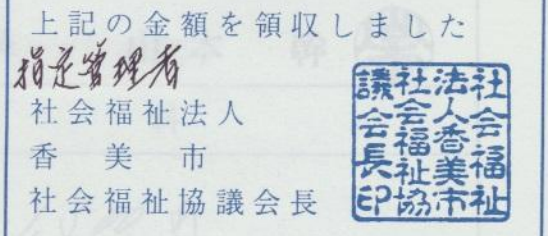 上記の金額を領収しました
指定管理者
社会福祉法人
香美市
社会福祉協議会長
社会福祉
法人香美市
社会福祉協
議会長印